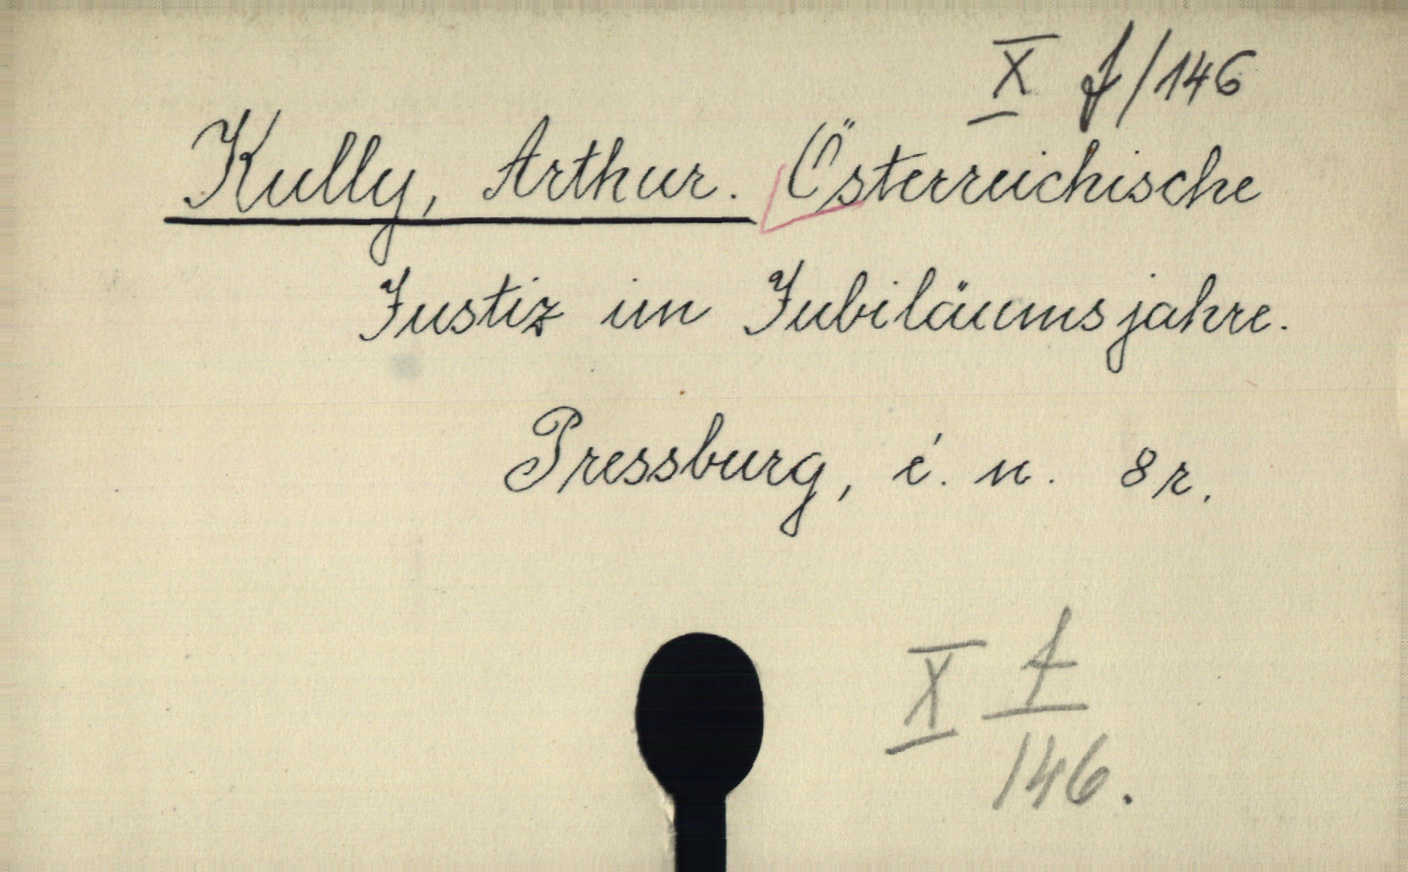 X f/146
Kully, Arthur. Österreichische
Justiz im Jubiläumsjahre.
Pressburg, é. n. 8r.
X f
146.